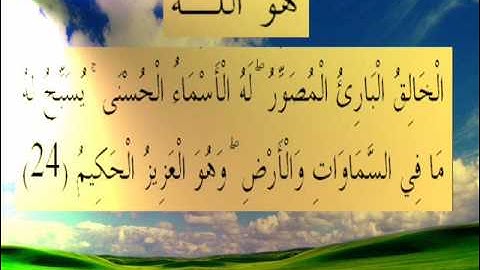 هُوَ اللَّهُ
الْخَالِقُ الْبَارِئُ الْمُصَوِّرُ ۖ لَهُ الْأَسْمَاءُ الْحُسْنَى ۚ يُسَبِّحُ لَهُ
مَا فِي السَّمَاوَاتِ وَالْأَرْضِ ۖ وَهُوَ الْعَزِيزُ الْحَكِيمُ (24)